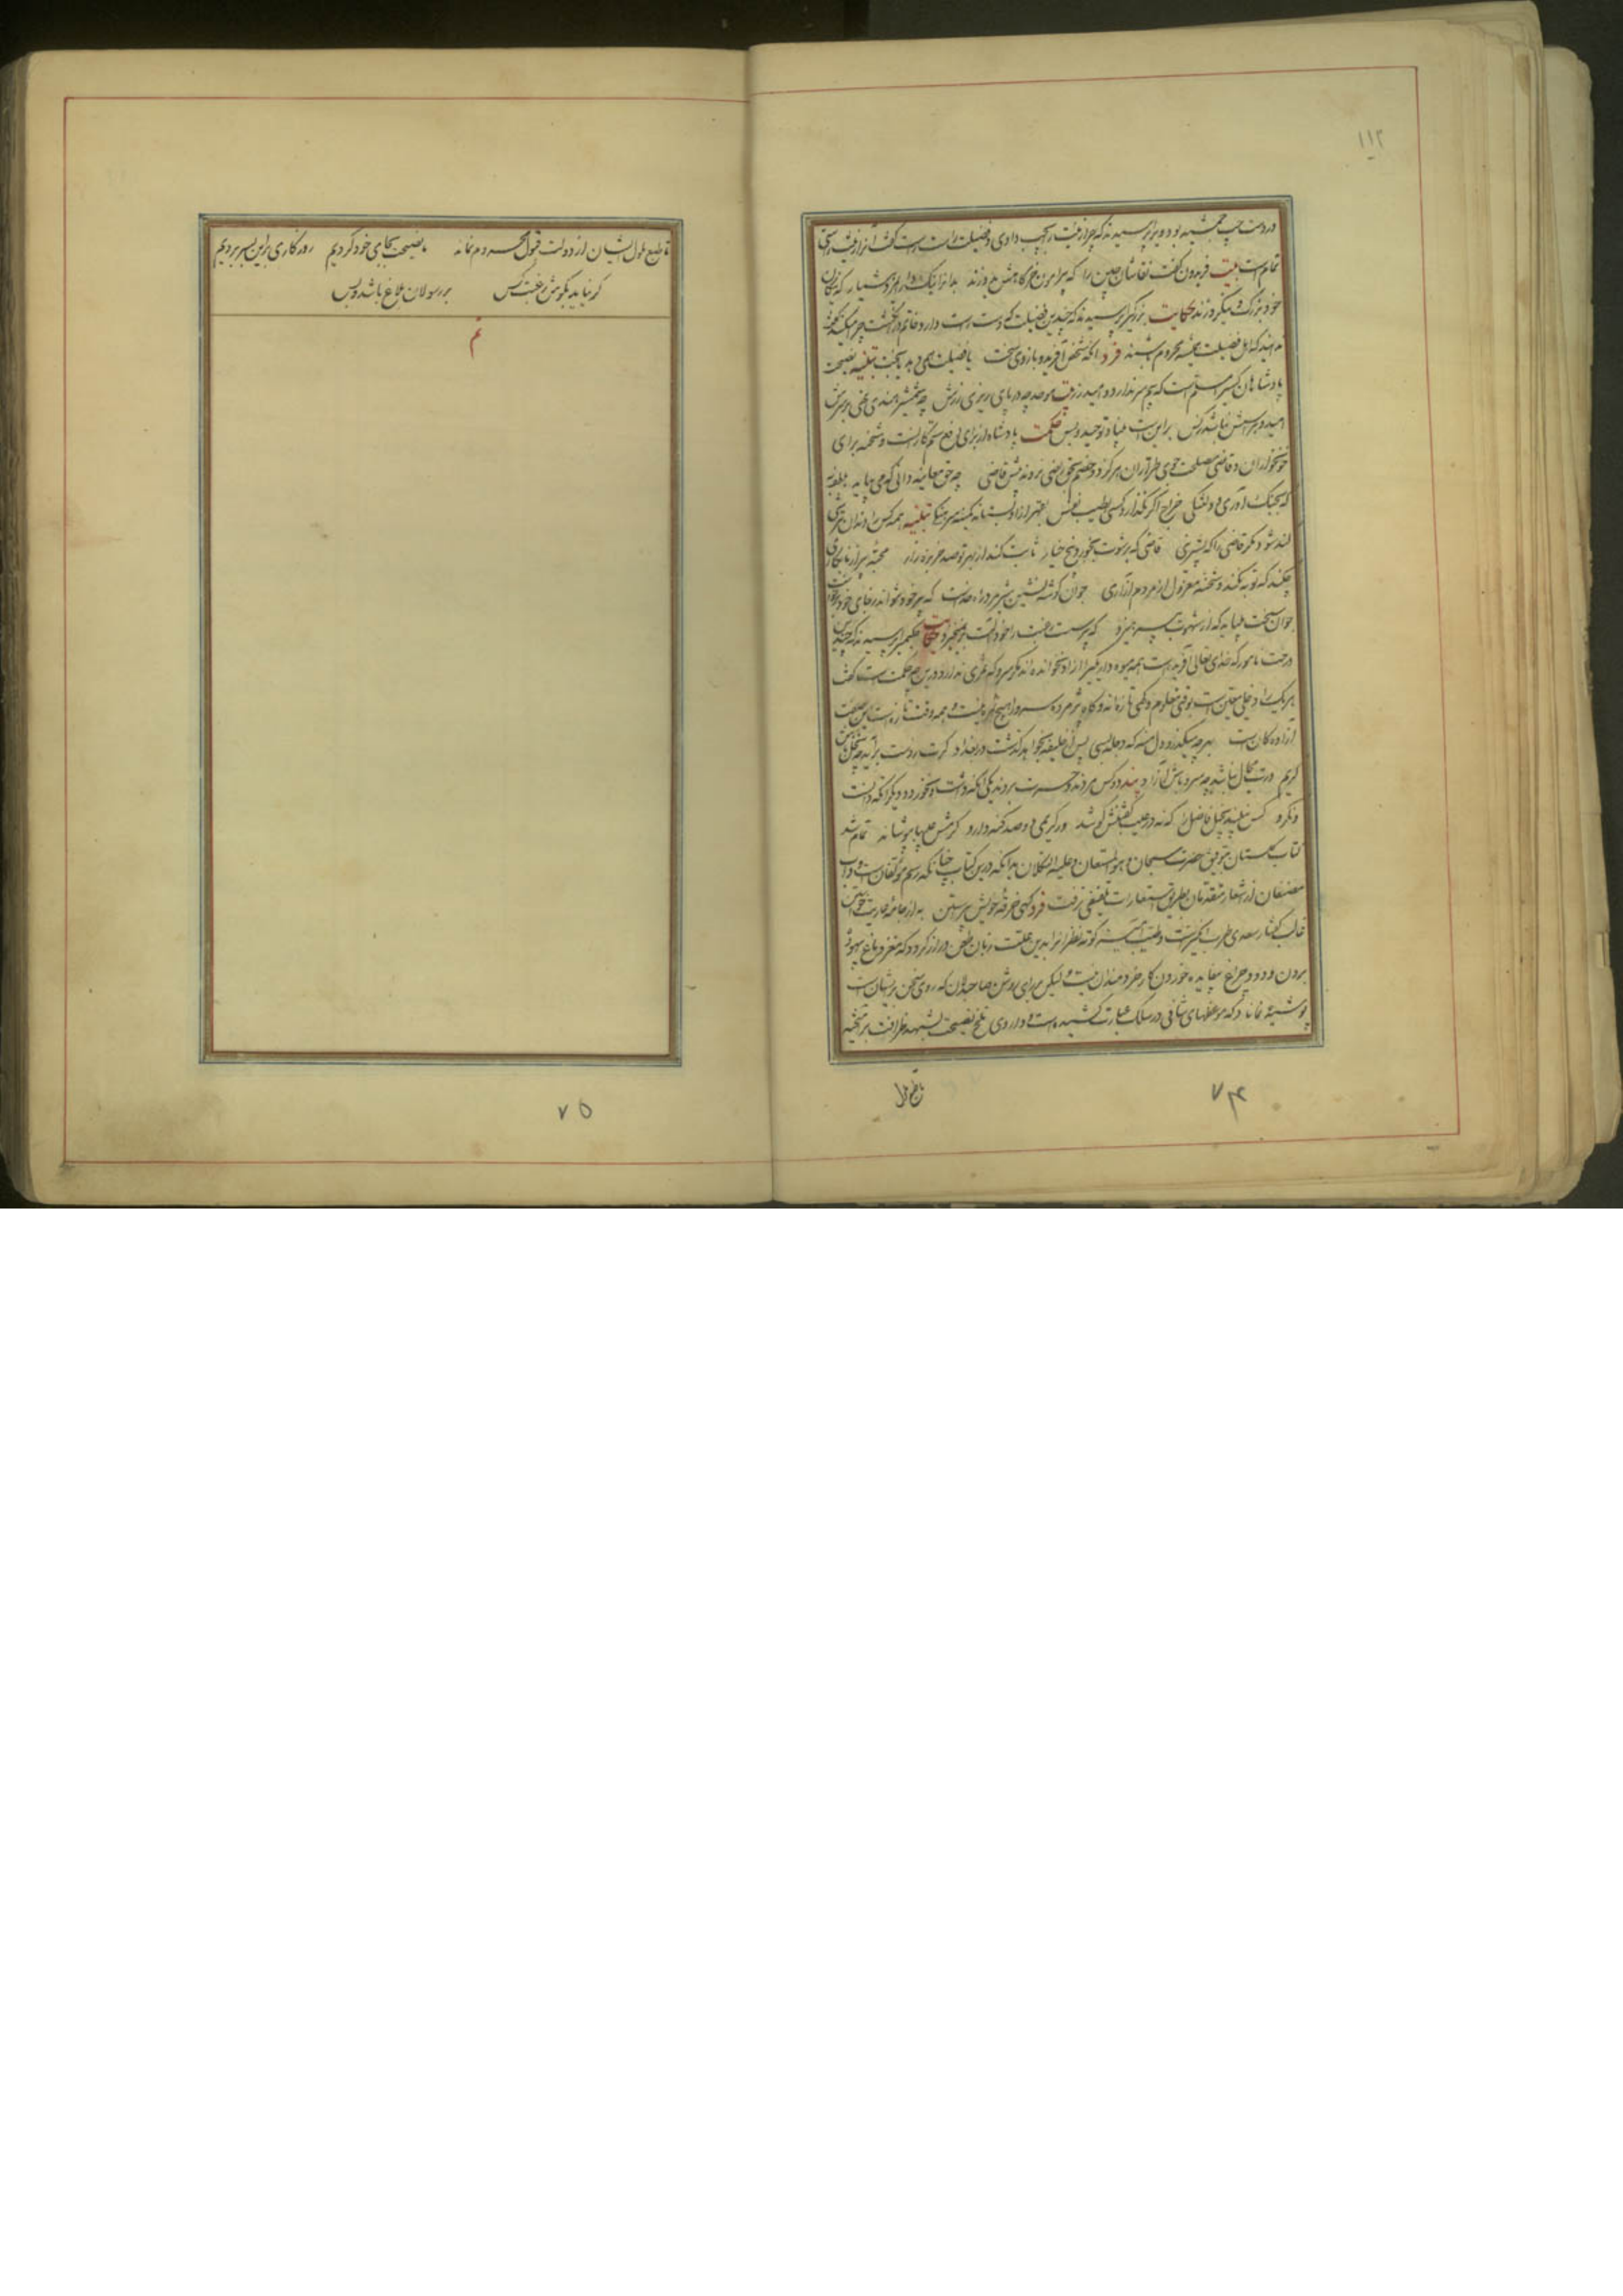 ۱۱۲
در دست چپ جمشید بود ویرا پرسیدند که چرا زینت بچپ دادی و فضیلت راست راست گفت راست را زینت راستی
تمام است بیت فریدون گفت نقاشان چین را که پیرامون خرگاهش بدوزند بدانرا نیک دار ای مرد هشیار که نیکان
خود بزرگ و نیک روزند حکایت بزرگی را پرسیدند که چندین فضیلت که دست راست دارد خاتم در انگشت چپ میکنند گفت
ندانید که اهل فضیلت همیشه محروم باشند فرد آنکه شخص آفرید و بازوی سخت یا فضیلت همی دهد یا بخت تنبیه نصیحت
پادشاهان کسی را مسلم است که بیم سر ندارد و امید زر بیت موحد چه در پای ریزی زرش چه شمشیر هندی نهی بر سرش
امید و هراسش نباشد ز کس بر این است بنیاد توحید و بس حکمت پادشاه از برای دفع ستمکارانست و شحنه برای
خونخواران و قاضی مصلحت جوی طراران هرگز دو خصم بحق راضی نروند پیش قاضی چو حق معاینه دانی که می بباید داد بلطف به
که بجنگ آوری و دلتنگی خراج اگر نگذارد کسی بطیب نفس بقهر ازو بستانند و مزد سرهنگی تنبیه همه کس را دندان بترشی
کند شود مگر قاضی را که بشیرینی قاضی که برشوت بخورد پنج خیار ثابت کند از بهر تو صد خربزه زار قحبه پیر از نابکاری
چکند که توبه نکند و شحنه معزول از مردم آزاری جوان گوشه نشین شیر مرد راه خداست که پیر خود نتواند ز جای خود برخاست
جوان سخت میباید که از شهوت بپرهیزد که پیر سست رغبت را خود آلت بر نمیخیزد حکایت حکیمی را پرسیدند که چندین
درخت نامور که خدای تعالی آفریده است همه میوه دار هیچ یک را آزاد نخوانده اند مگر سرو که ثمری ندارد درین چه حکمت است گفت
هر یک را دخلی معین است بوقتی معلوم و گهی تازه اند و گاه پژمرده سرو را هیچ ثمره نیست و همه وقت تازه است این صفت
آزادگان است بهر چه میگذرد دل منه که دجله بسی پس از خلیفه بخواهد گذشت در بغداد گرت ز دست برآید چو نخل باش
کریم ورت مجال نباشد چو سرو باش آزاد پند دو کس مردند و حسرت بردند یکی آنکه داشت و نخورد و دیگر آنکه دانست
و نکرد کس نبیند بخیل فاضل را که نه در عیب گفتنش کوشد ور کریمی دو صد گنه دارد کرمش عیبها بپوشاند تمام شد
کتاب گلستان بتوفیق حضرت سبحان و هو المستعان و علیه التکلان بدانکه درین کتاب چنانکه رسم مؤلفان است و داب
مصنفان از شعار متقدمان بطریق استعارت تلفیقی نرفت فرد کهن خرقه خویش پیراستن به از جامه عاریت خواستن
غالب گفتار سعدی طرب انگیز است و طیب آمیز کوته نظران را بدین علت زبان طعن دراز گردد که مغز دماغ بیهوده
بردن و دود چراغ بیفایده خوردن کار خردمندان نیست ولیکن بر رای روشن صاحبدلان که روی سخن بریشان است
پوشیده نماند که در موعظهای شافی در سلک عبارت کشیده است و داروی تلخ نصیحت بشهد ظرافت برآمیخته
تا طبع ملول
۷۴
تا طبع ملول ایشان از دولت قبول محروم نماند ما نصیحت بجای خود کردیم روزگاری براین بسر بردیم
گر نیاید بگوش رغبت کس بر رسولان بلاغ باشد و بس
تم
۷۵